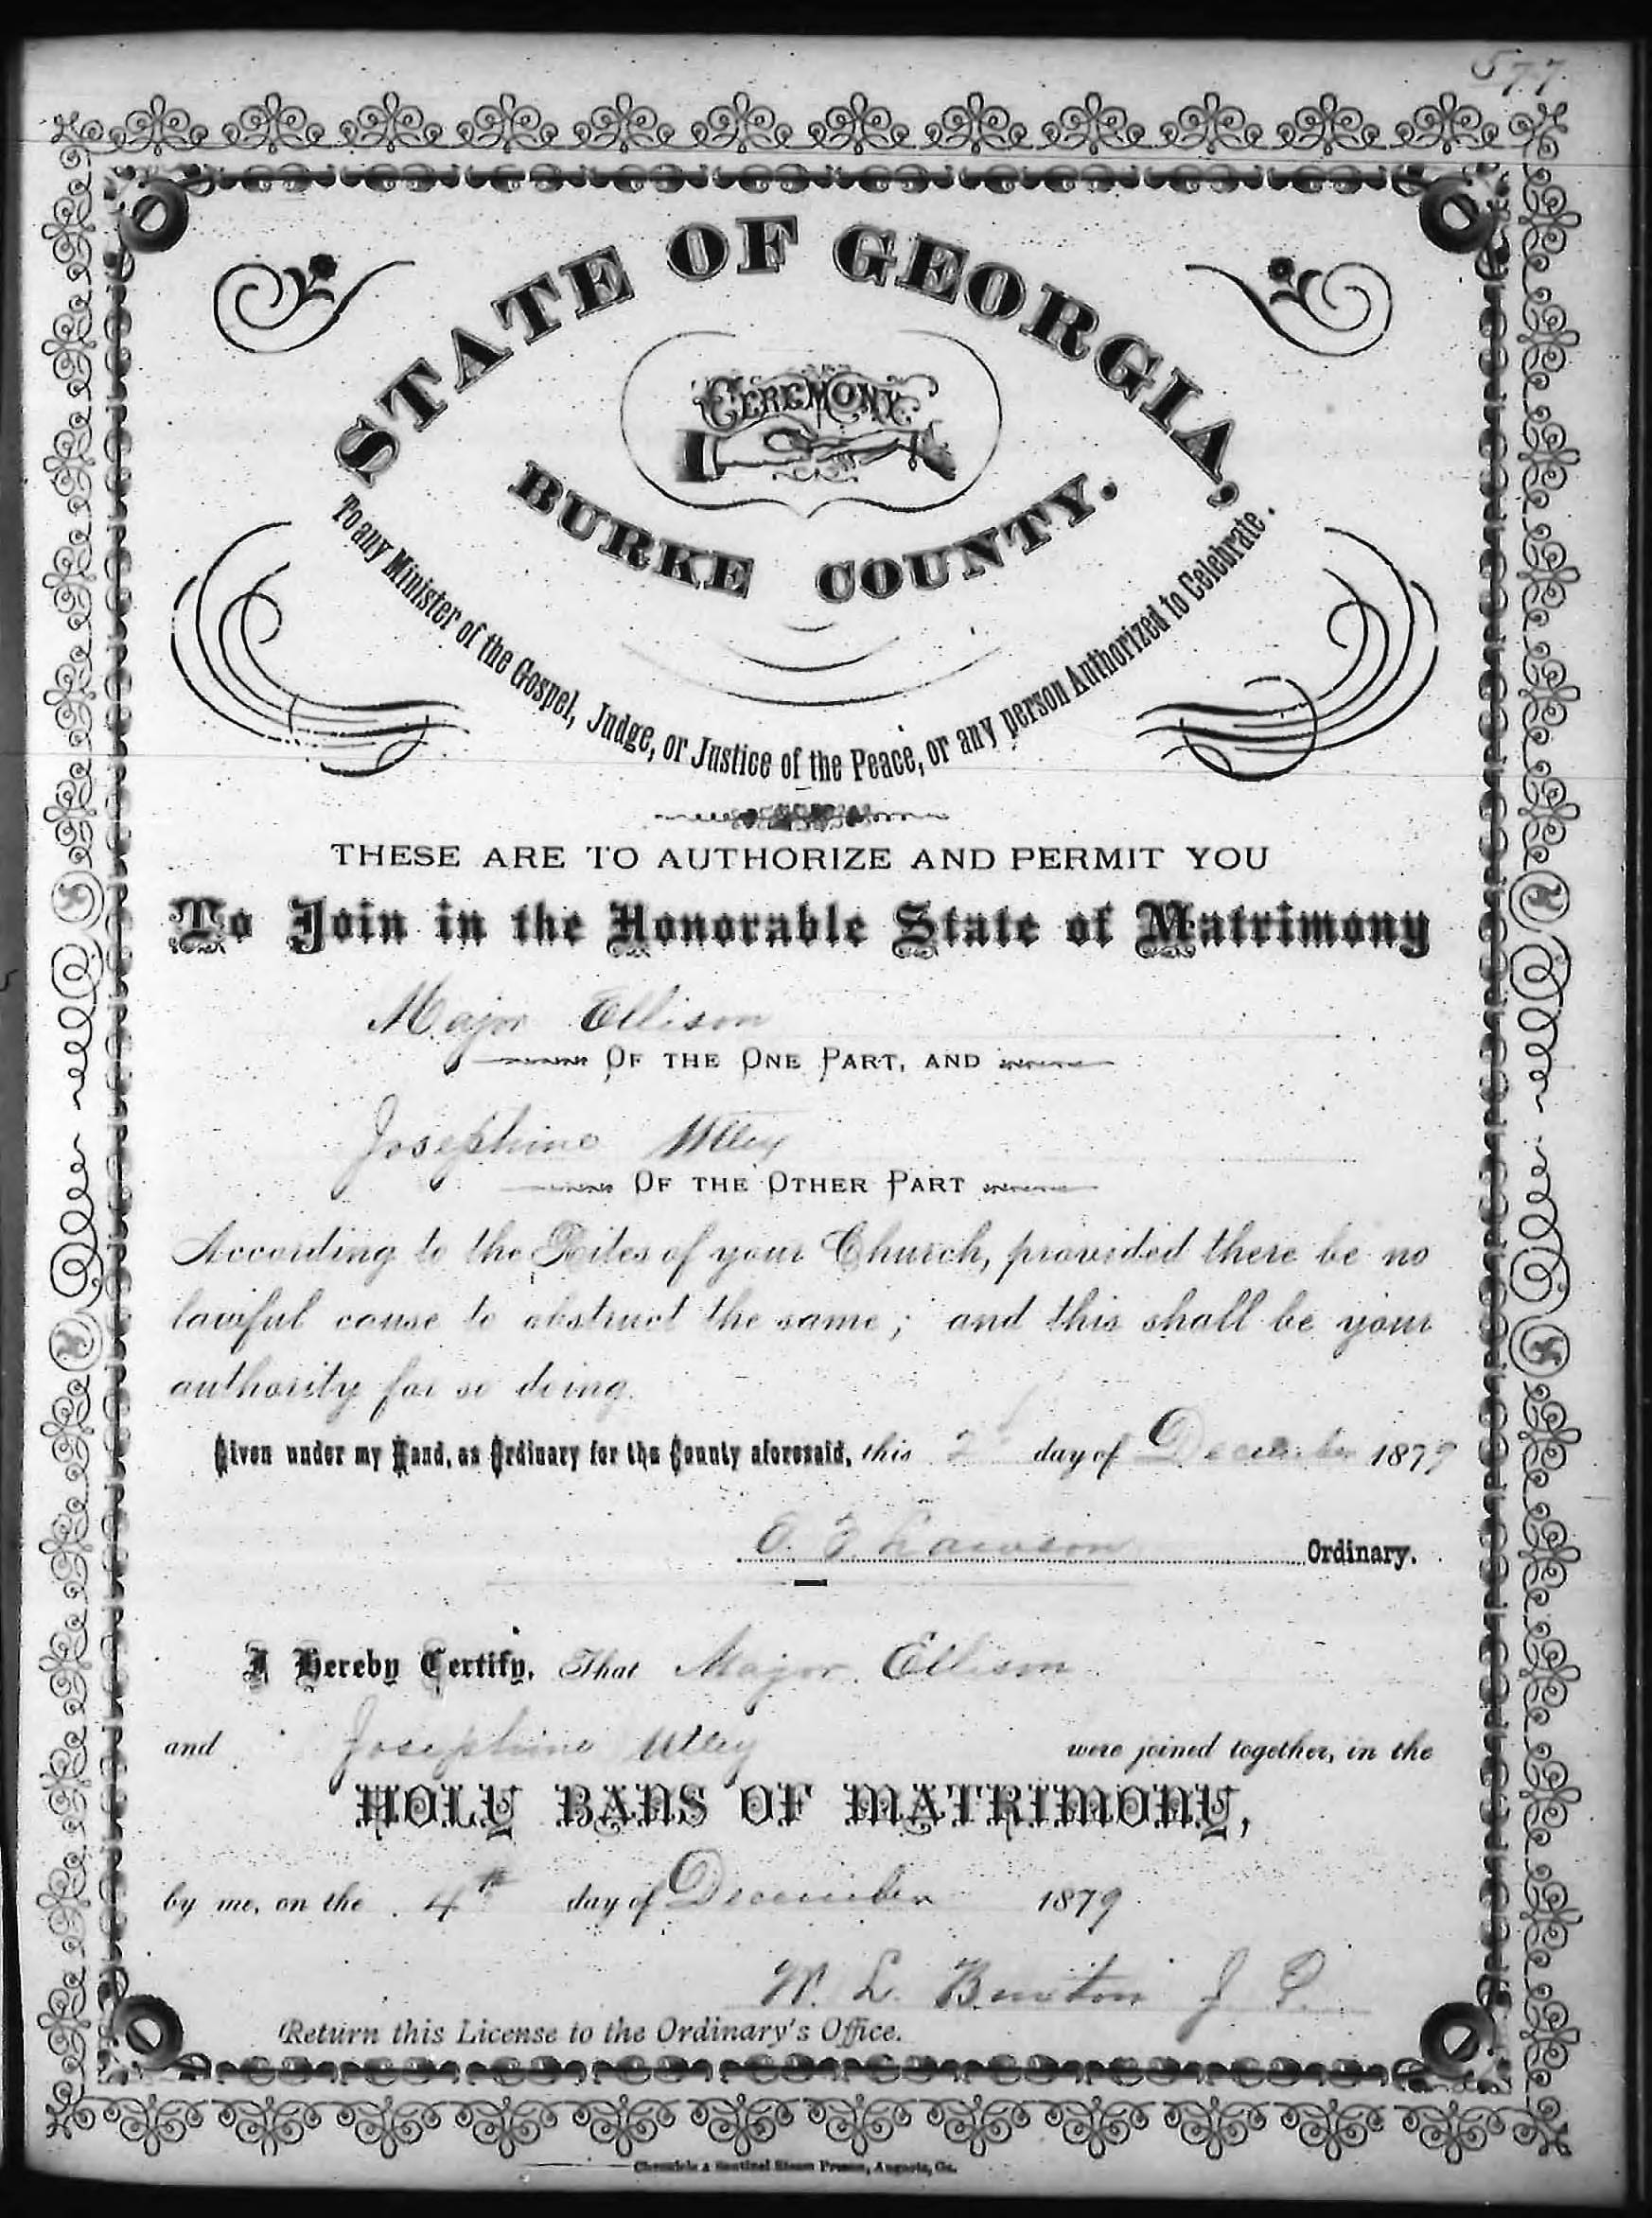 577
STATE OF GEORGIA,
CEREMONY
BURKE COUNTY.
To any Minister of the Gospel, Judge, or Justice of the Peace, or any person Authorized to Celebrate.
THESE ARE TO AUTHORIZE AND PERMIT YOU
To Join in the Honorable State of Matrimony
Major Ellison
OF THE ONE PART, AND
Josephine Utley
OF THE OTHER PART
According to the Rites of your Church, provided there be no
lawful cause to obstruct the same; and this shall be your
authority for so doing.
Given under my Hand, as Ordinary for the County aforesaid, this 2d day of December 1879
E. F. Lawson Ordinary.
I Hereby Certify, That Major Ellison
and Josephine Utley were joined together, in the
HOLY BANS OF MATRIMONY,
by me, on the 4th day of December 1879
W. L. Buxton J P.
Return this License to the Ordinary's Office.
Chronicle & Sentinel Steam Presses, Augusta, Ga.